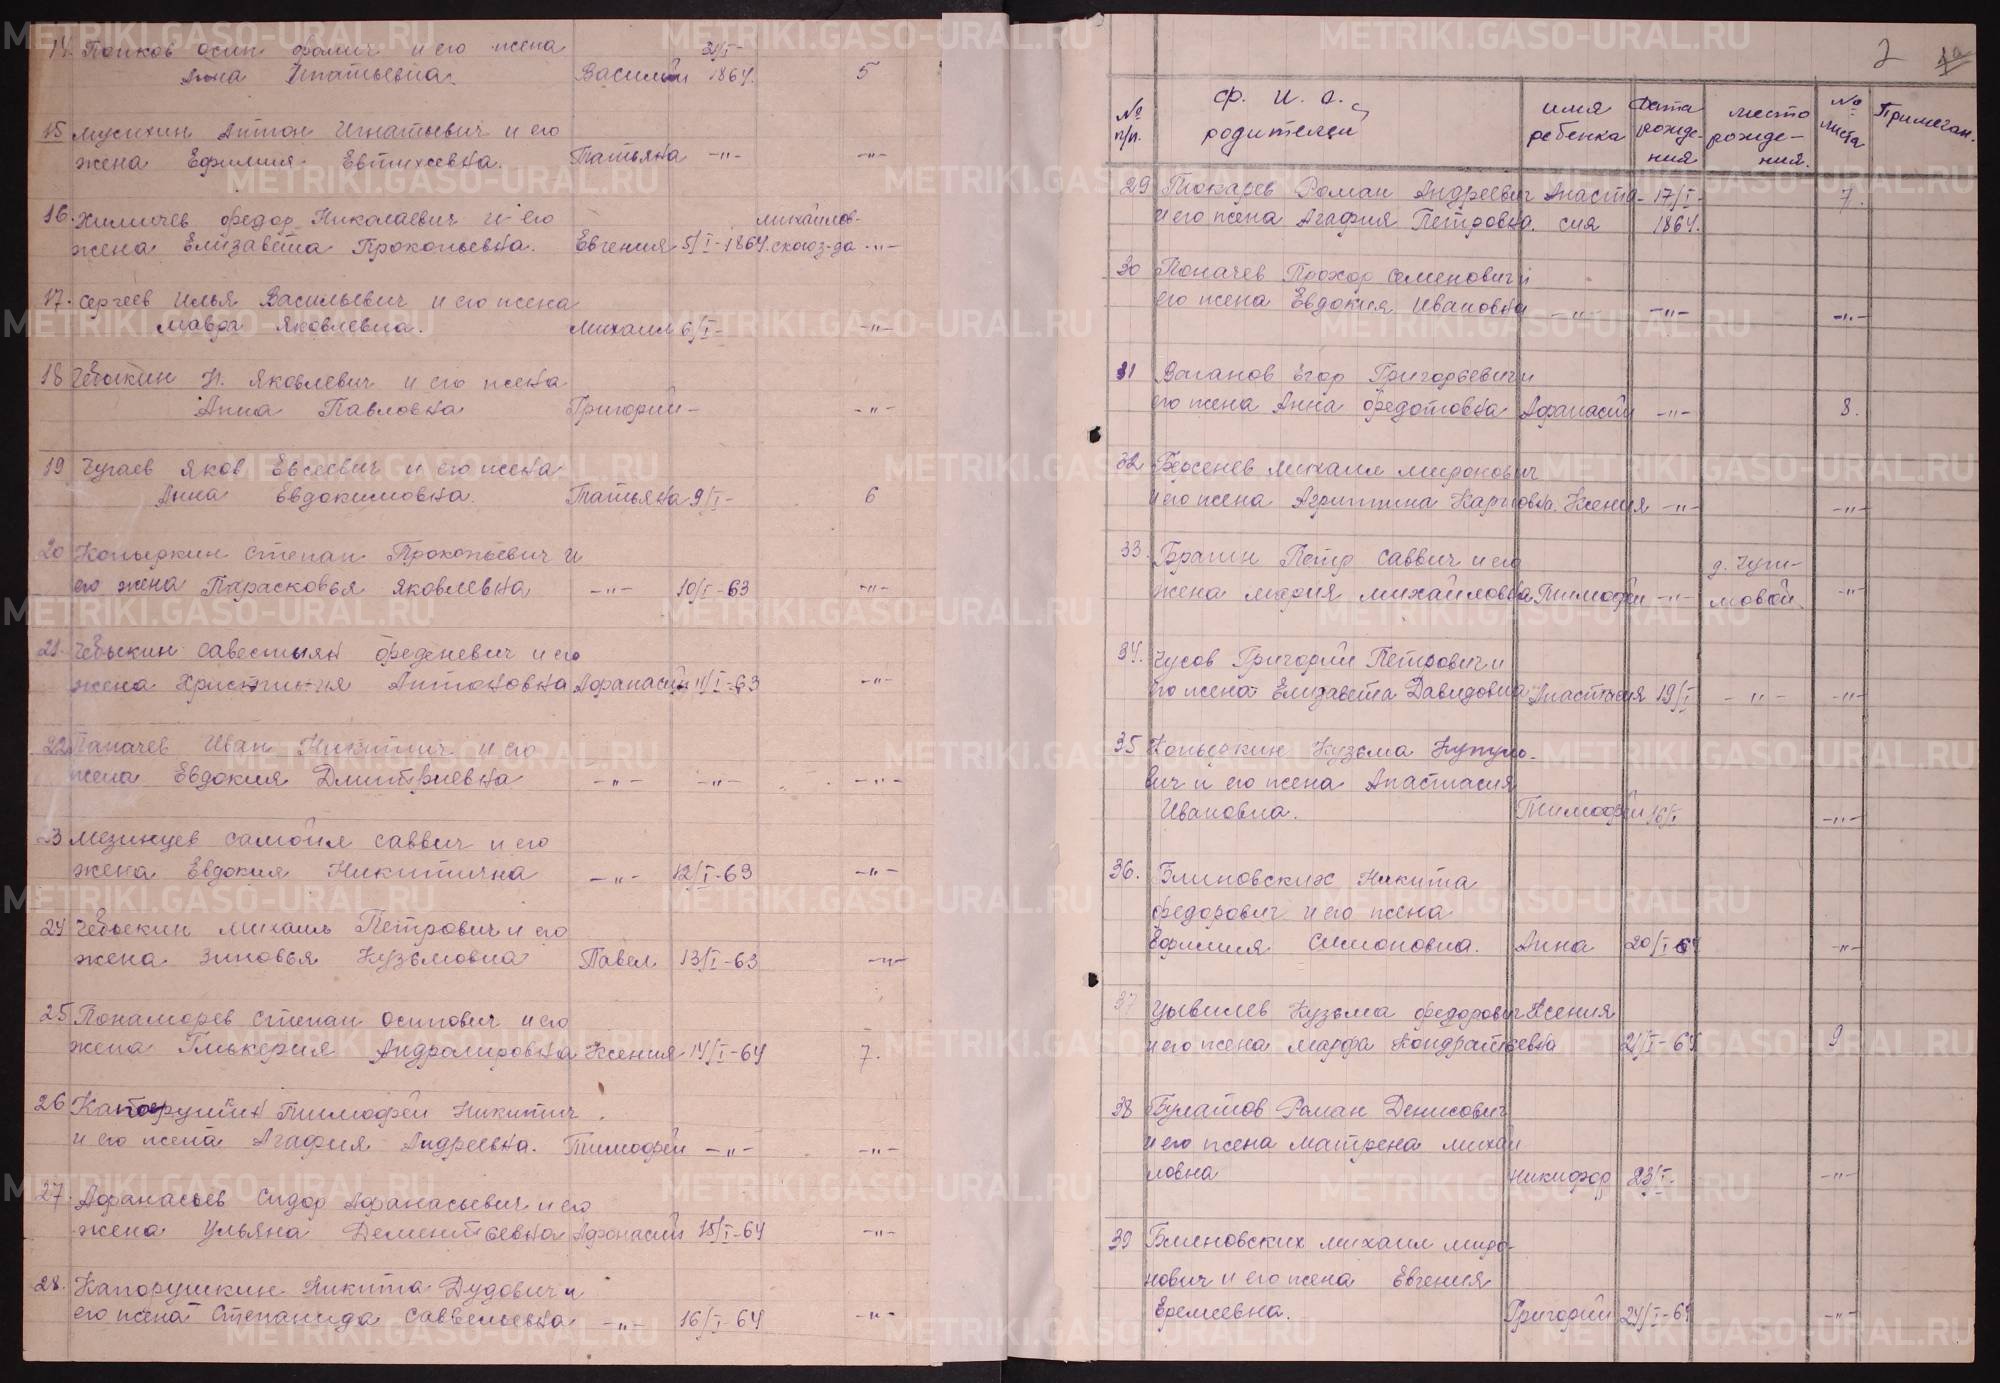 14. Попков Осип Фомич и его жена
Анна Игнатьевна. Василий 31/I- 1864. 5
15 Мусихин Антон Игнатьевич и его
жена Ефимия Евтихеевна. Татьяна -"- -"-
16. Химичев Федор Николаевич и его
жена Елизавета Прокопьевна. Евгения 5/I-1864. Михайлов-
ской з-да -"-
17. Сергеев Илья Васильевич и его жена
Мавра Яковлевна. Михаил 6/I- -"-
18 Чебыкин Н. Яковлевич и его жена
Анна Павловна Григорий - -"-
19 Чугаев Яков Евсеевич и его жена
Анна Евдокимовна. Татьяна 9/I- 6
20 Копыркин Степан Прокопьевич и
его жена Парасковья Яковлевна -"- 10/I-63 -"-
21. Чебыкин Савестьян и его
жена Христиния Антоновна Афанасий 11/I-63 -"-
22 Папачев Иван Никитич и его
жена Евдокия Дмитриевна -"- -"- -"-
23 Мезинцев Самойл Саввич и его
жена Евдокия Никитична -"- 12/I-63 -"-
24 Чебыкин Михаиль Петрович и его
жена Зиновья Кузьмовна Павел 13/I-63 -"-
25 Понаморев Степан Осипович и его
жена Гликерия Андромировна Ксения 14/I-64 7.
26 Тимофей Никитич
и его жена Агафия Андреевна. Тимофей -"- -"-
27. Афанасьев Сидор Афанасьевич и его
жена Ульяна Дементьевна Афонасий 15/I-64 -"-
28. Капорушкин Никита Дудович и
его жена Степанида Саввельевна -"- 16/I-64 -"-
2 1а
№ п/п. Ф. И. О. родителей имя ребенка Дата рожде-
ния место рожде-
ния. № листа Примечан.
29 Токарев Роман Андреевич Анаста- 17/I- 7.
и его жена Агафия Петровна. сия 1864.
30 Попачев Прохор Семенович и
его жена Евдокия Ивановна -"- -"- -"-
31 Ваганов Егор Григорьевич и
его жена Анна Федотовна Афанасий -"- 8.
32 Берсенев Михаил Миронович
и его жена Агриппина Карповна. Ксения -"- -"-
33. Брагин Петр Саввич и его д. Чуги-
жена Мария Михайловна Тимофей -"- мовой. -"-
34. Чусов Григорий Петрович и
его жена Елизавета Давидовна Анастасия 19/I -"- -"-
35 Копыркин Кузьма
вич и его жена Анастасия
Ивановна. Тимофей 16/I -"-
36. Блиновских Никита
Федорович и его жена
Ефимия Симоновна. Анна 20/I-64 -"-
37 Цывилев Кузьма Федорович Ксения
и его жена Марфа Кондратьевна 21/I-64 9
38 Булатов Роман Денисович
и его жена Матрена Михай
ловна Никифор 23/I- -"-
39 Блиновских Михаил Миро-
нович и его жена Евгения
Еремеевна. Григорий 24/I-64 -"-
METRIKI.GASO-URAL.RU